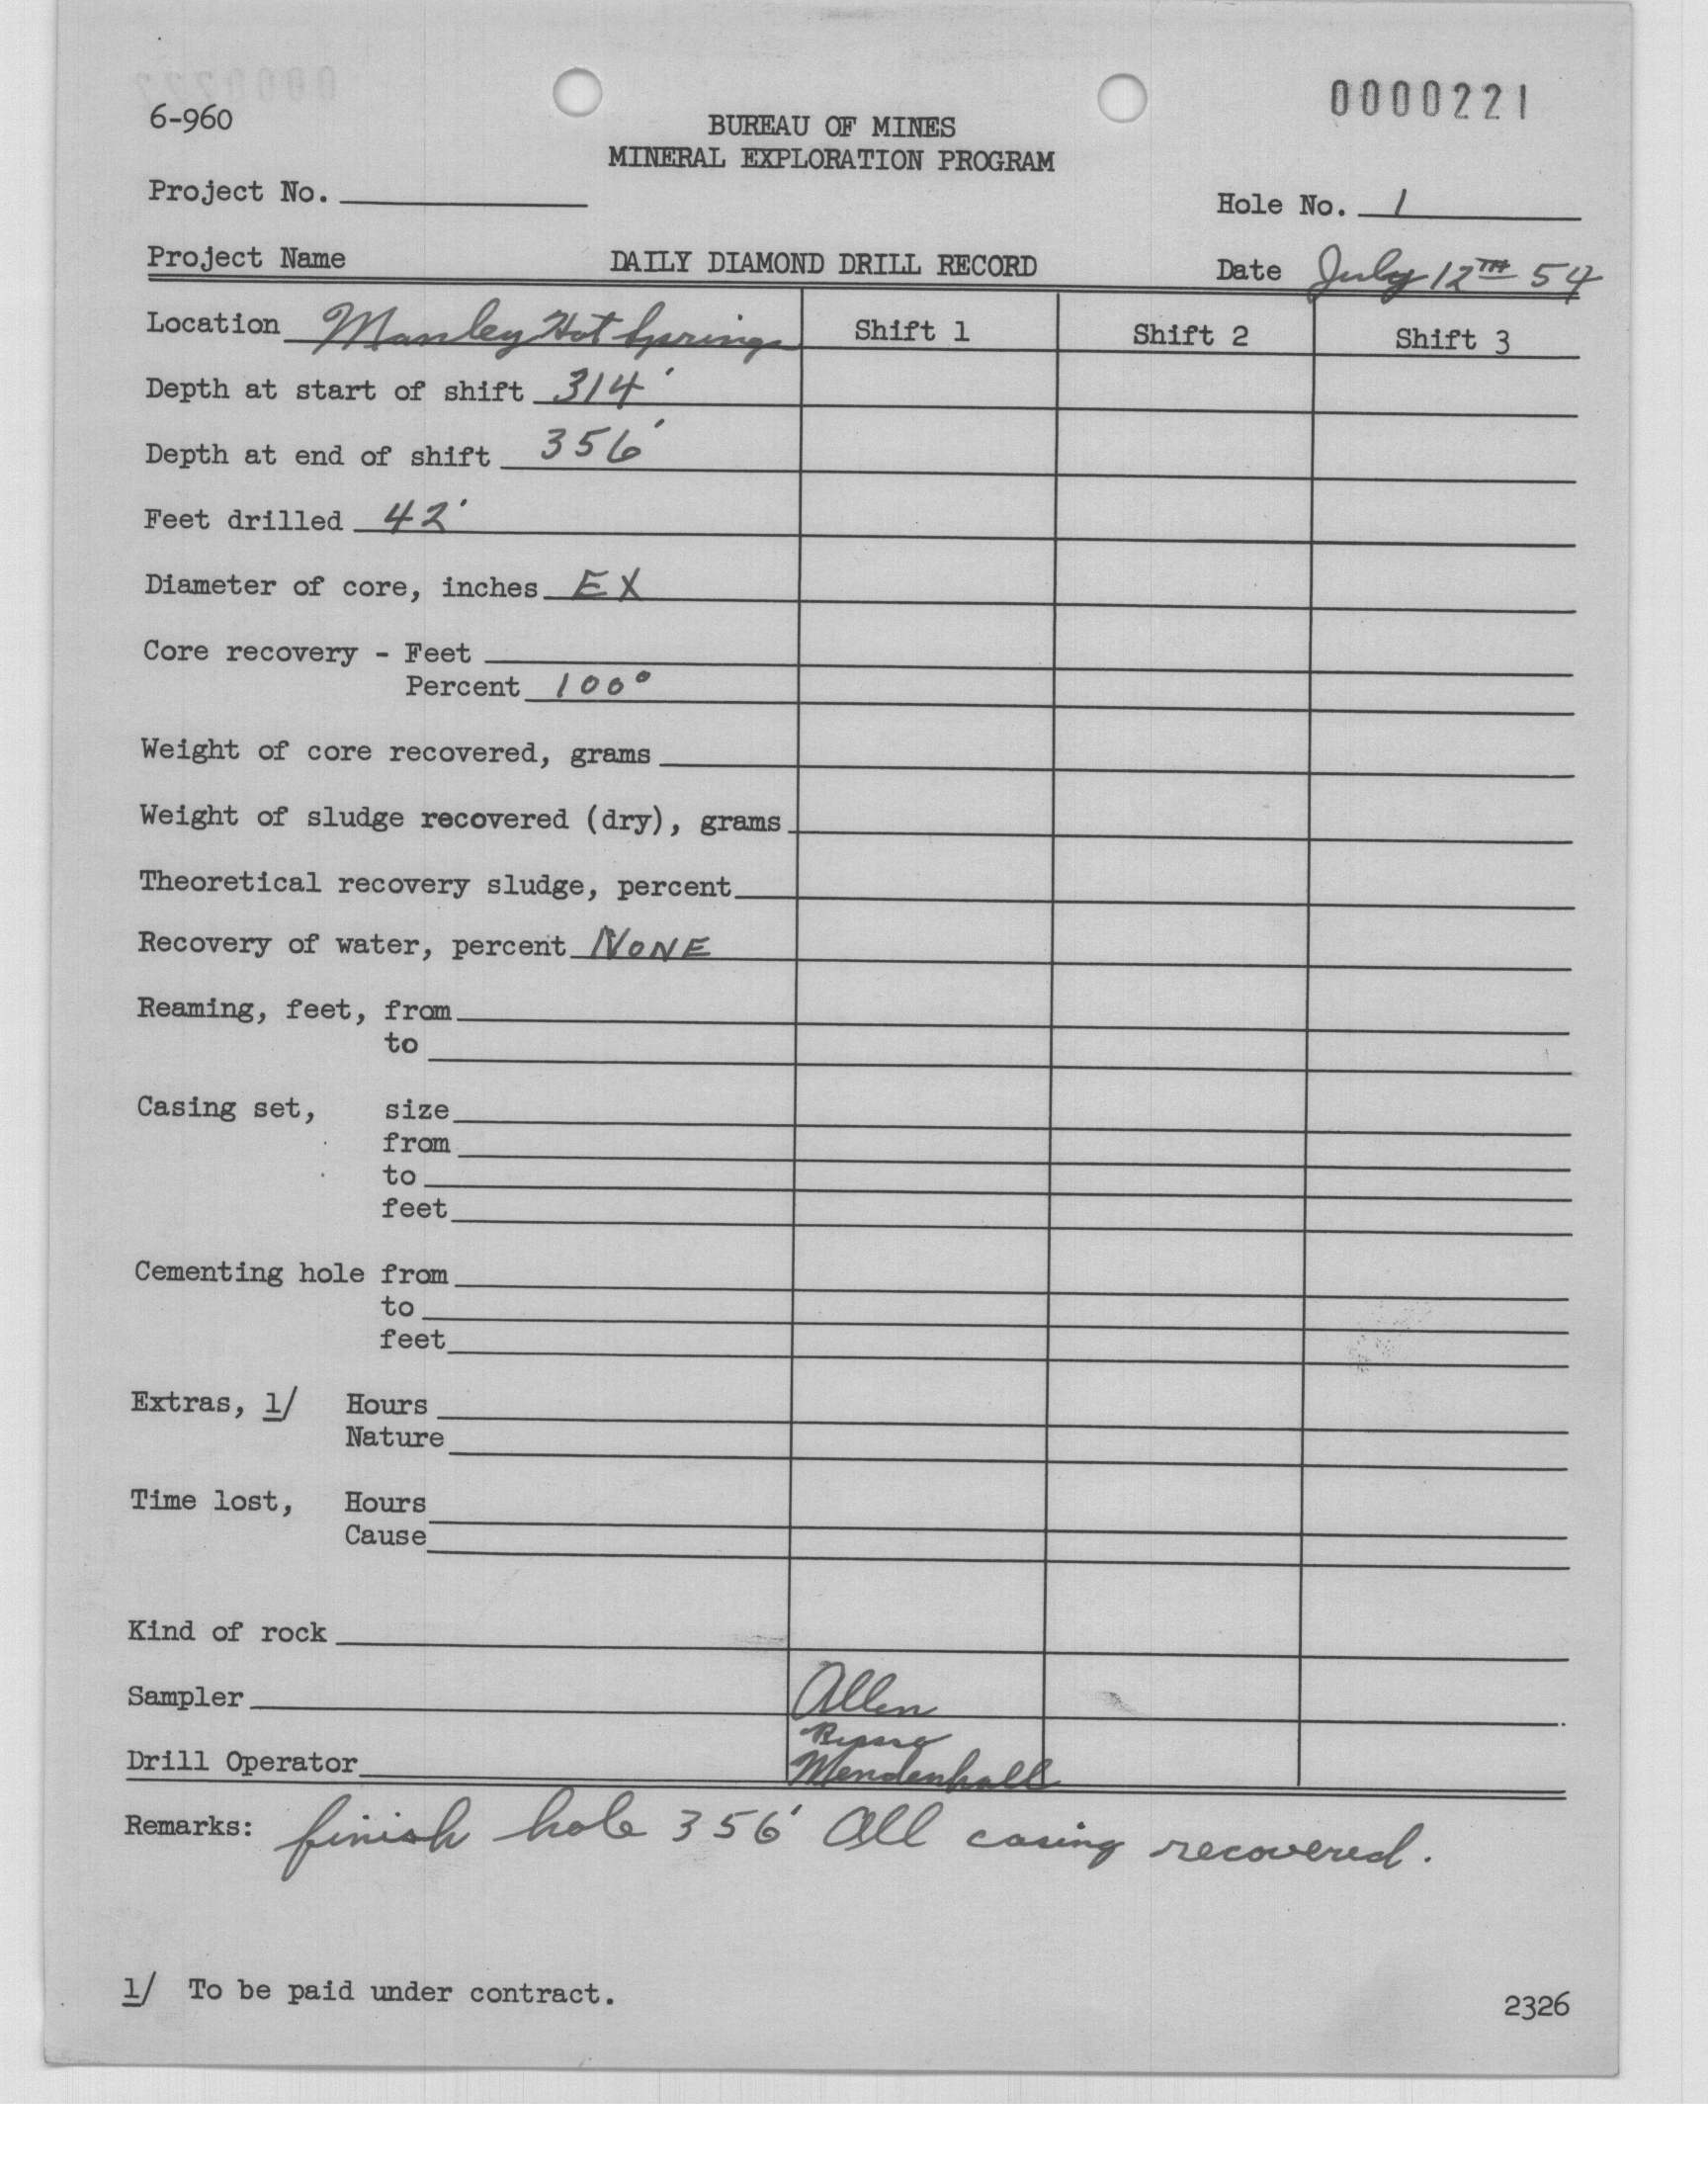 0000221
6-960
BUREAU OF MINES
MINERAL EXPLORATION PROGRAM
Project No.
Hole No. 1
Project Name DAILY DIAMOND DRILL RECORD Date July 12TH 54
Location Manley Hot Springs Shift 1 Shift 2 Shift 3
Depth at start of shift 314'
Depth at end of shift 356'
Feet drilled 42'
Diameter of core, inches EX
Core recovery - Feet
Percent 100°
Weight of core recovered, grams
Weight of sludge recovered (dry), grams
Theoretical recovery sludge, percent
Recovery of water, percent NONE
Reaming, feet, from
to
Casing set, size
from
to
feet
Cementing hole from
to
feet
Extras, 1/ Hours
Nature
Time lost, Hours
Cause
Kind of rock
Sampler Allen
Drill Operator Mendenhall
Remarks: finish hole 356' All casing recovered.
1/ To be paid under contract.
2326